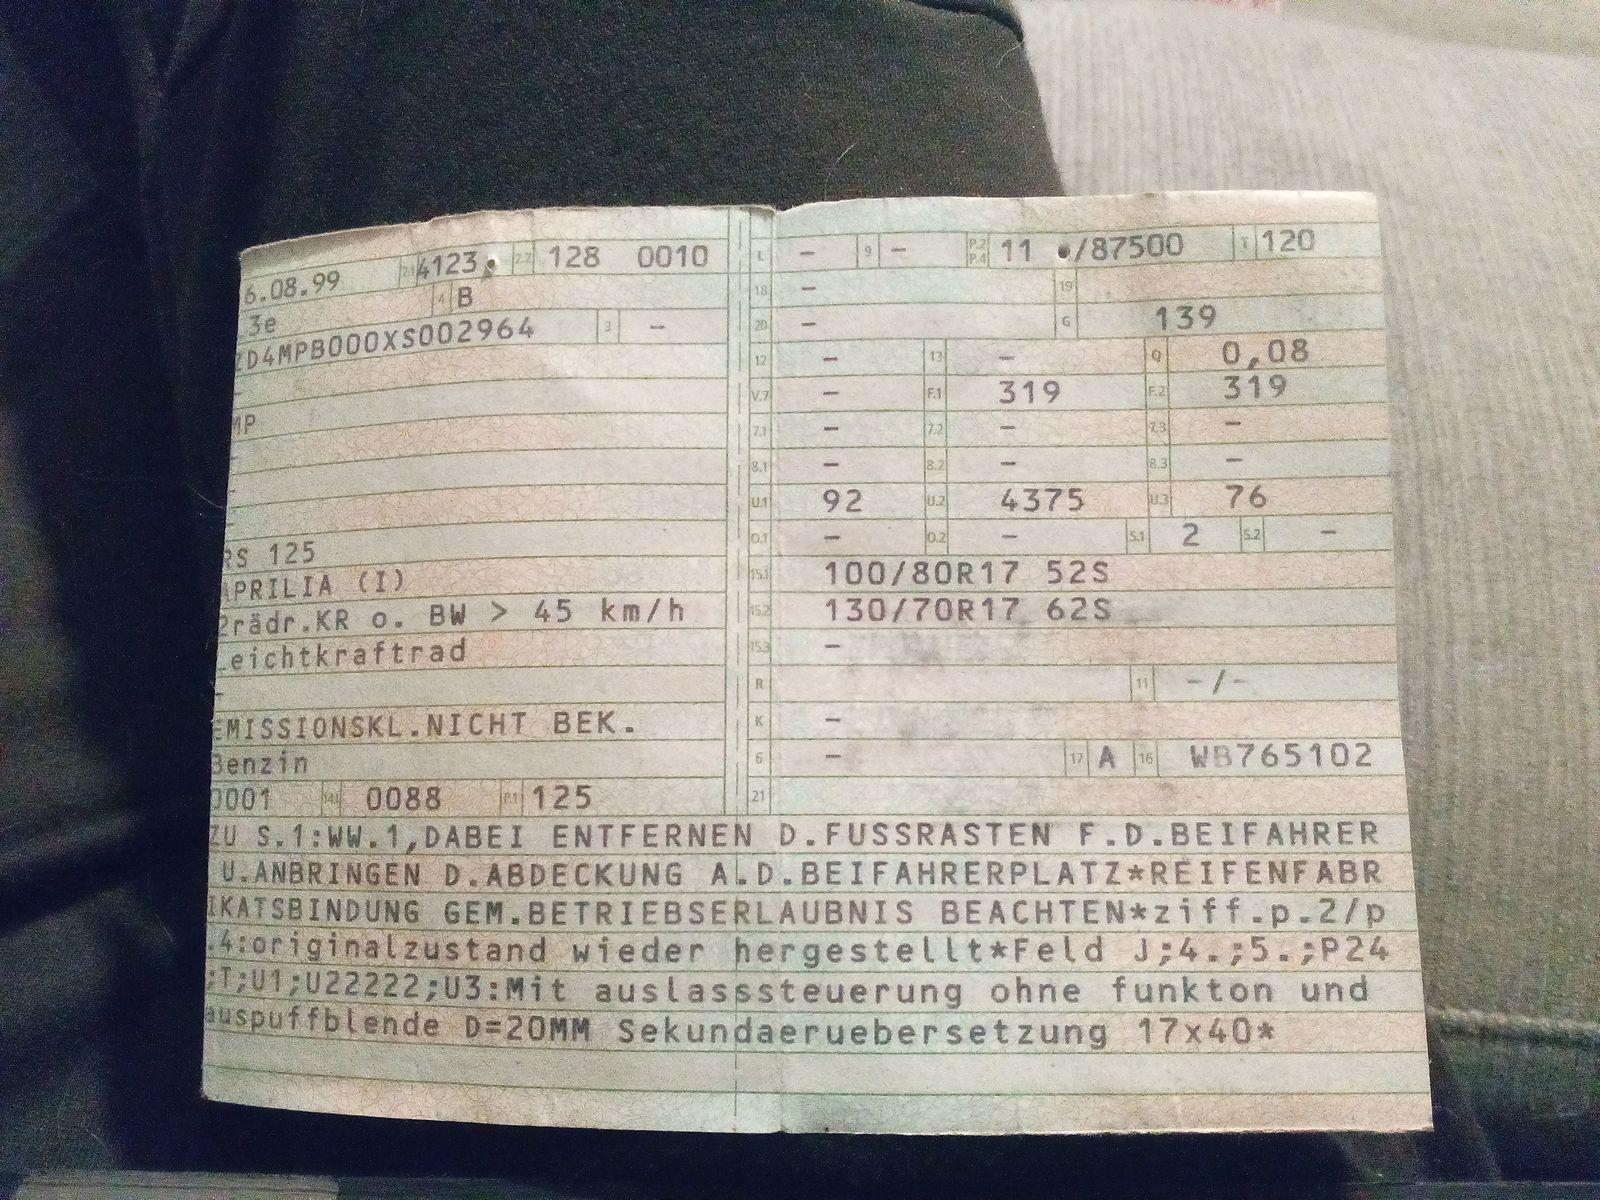 6.08.99 2.1 4123 2.2 128 0010 L - 9 - P.2 P.4 11 /87500 T 120
4 B 18 - 19
3e 20 - G 139
ZD4MPB000XS002964 3 - 12 - 13 - Q 0,08
- V.7 - F.1 319 F.2 319
MP 7.1 - 7.2 - 7.3 -
- 8.1 - 8.2 - 8.3 -
- U.1 92 U.2 4375 U.3 76
RS 125 O.1 - O.2 - S.1 2 S.2 -
APRILIA (I) 15.1 100/80R17 52S
2rädr.KR o. BW > 45 km/h 15.2 130/70R17 62S
Leichtkraftrad 15.3 -
- R 11 -/-
EMISSIONSKL.NICHT BEK. K -
Benzin 6 - 17 A 16 WB765102
0001 14.1 0088 P.1 125 21
ZU S.1:WW.1,DABEI ENTFERNEN D.FUSSRASTEN F.D.BEIFAHRER
U.ANBRINGEN D.ABDECKUNG A.D.BEIFAHRERPLATZ*REIFENFABR
IKATSBINDUNG GEM.BETRIEBSERLAUBNIS BEACHTEN*ziff.p.2/p
.4:originalzustand wieder hergestellt*Feld J;4.;5.;P24
;T;U1;U22222;U3:Mit auslasssteuerung ohne funkton und
auspuffblende D=20MM Sekundaeruebersetzung 17x40*